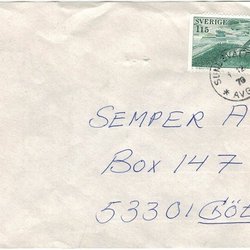 SVERIGE
115
SEMPER A
Box 147
53301 Göt